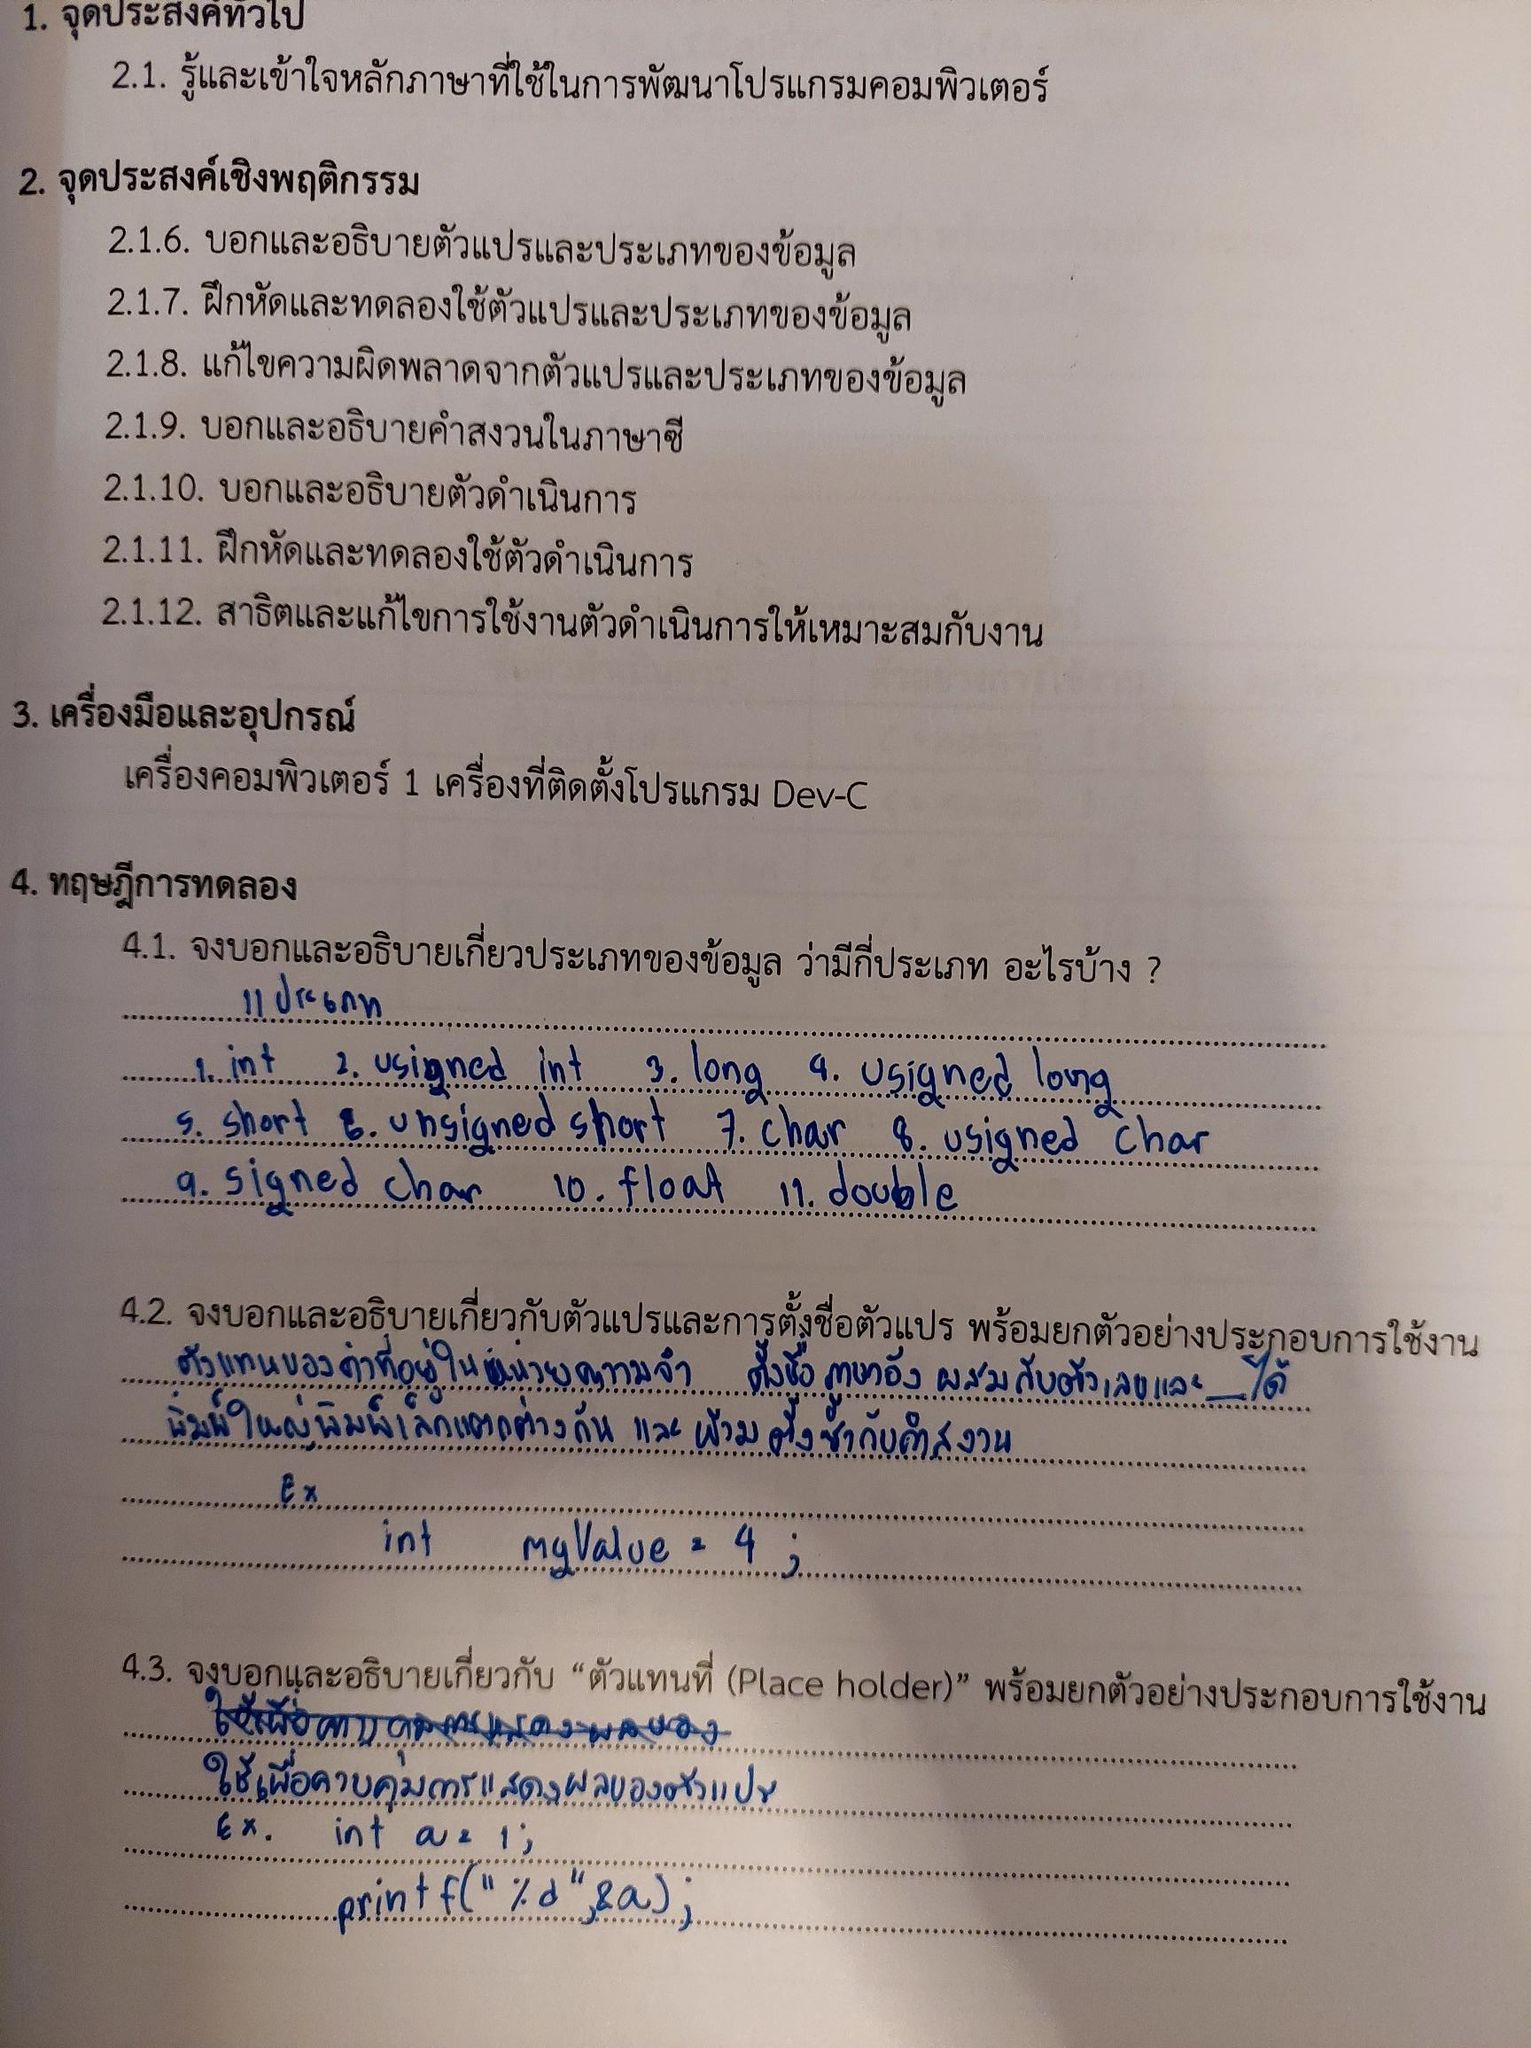 1. จุดประสงค์ทั่วไป
2.1. รู้และเข้าใจหลักภาษาที่ใช้ในการพัฒนาโปรแกรมคอมพิวเตอร์
2. จุดประสงค์เชิงพฤติกรรม
2.1.6. บอกและอธิบายตัวแปรและประเภทของข้อมูล
2.1.7. ฝึกหัดและทดลองใช้ตัวแปรและประเภทของข้อมูล
2.1.8. แก้ไขความผิดพลาดจากตัวแปรและประเภทของข้อมูล
2.1.9. บอกและอธิบายคำสงวนในภาษาซี
2.1.10. บอกและอธิบายตัวดำเนินการ
2.1.11. ฝึกหัดและทดลองใช้ตัวดำเนินการ
2.1.12. สาธิตและแก้ไขการใช้งานตัวดำเนินการให้เหมาะสมกับงาน
3. เครื่องมือและอุปกรณ์
เครื่องคอมพิวเตอร์ 1 เครื่องที่ติดตั้งโปรแกรม Dev-C
4. ทฤษฎีการทดลอง
4.1. จงบอกและอธิบายเกี่ยวประเภทของข้อมูล ว่ามีกี่ประเภท อะไรบ้าง ?
11 ประเภท
1. int 2. usigned int 3. long 4. usigned long
5. short 6. unsigned short 7. char 8. usigned char
9. signed char 10. float 11. double
4.2. จงบอกและอธิบายเกี่ยวกับตัวแปรและการตั้งชื่อตัวแปร พร้อมยกตัวอย่างประกอบการใช้งาน
ตัวแทนของค่าที่อยู่ในหน่วยความจำ ตั้งชื่อ ภาษาอัง ผสมกับตัวเลขและ _ ได้
พิมพ์ใหญ่พิมพ์เล็กแตกต่างกัน และ ห้าม ตั้งซ้ำกับคำสงวน
Ex
int myValue = 4 ;
4.3. จงบอกและอธิบายเกี่ยวกับ “ตัวแทนที่ (Place holder)” พร้อมยกตัวอย่างประกอบการใช้งาน
ใช้เพื่อควบคุมการแสดงผลของตัวแปร
Ex. int a = 1;
printf("%d",&a);